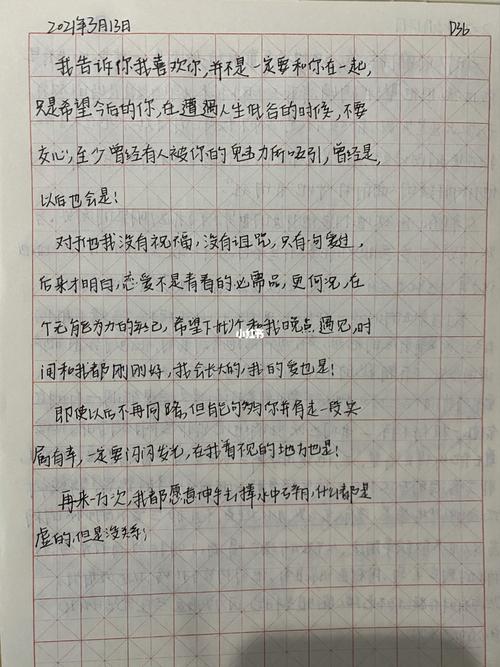 2021年3月13日 D36
我告诉你我喜欢你,并不是一定要和你在一起,
只是希望今后的你,在遭遇人生低谷的时候,不要
灰心,至少曾经有人被你的魅力所吸引,曾经是,
以后也会是!
对于他我没有祝福,没有诅咒,只有句爱过,
后来才明白,恋爱不是青春的必需品,更何况,在
个无能为力的年纪,希望下一个和我晚点遇见,时
间和我都刚刚好,我会长大的,我的爱也是!
即使以后不再同路,但能够与你并肩走一段实
属有幸,一定要闪闪发光,在我看不见的地方也是!
再来一万次,我都愿意伸手去捧水中的月,什么都是
虚的,但是没关系;
小红书